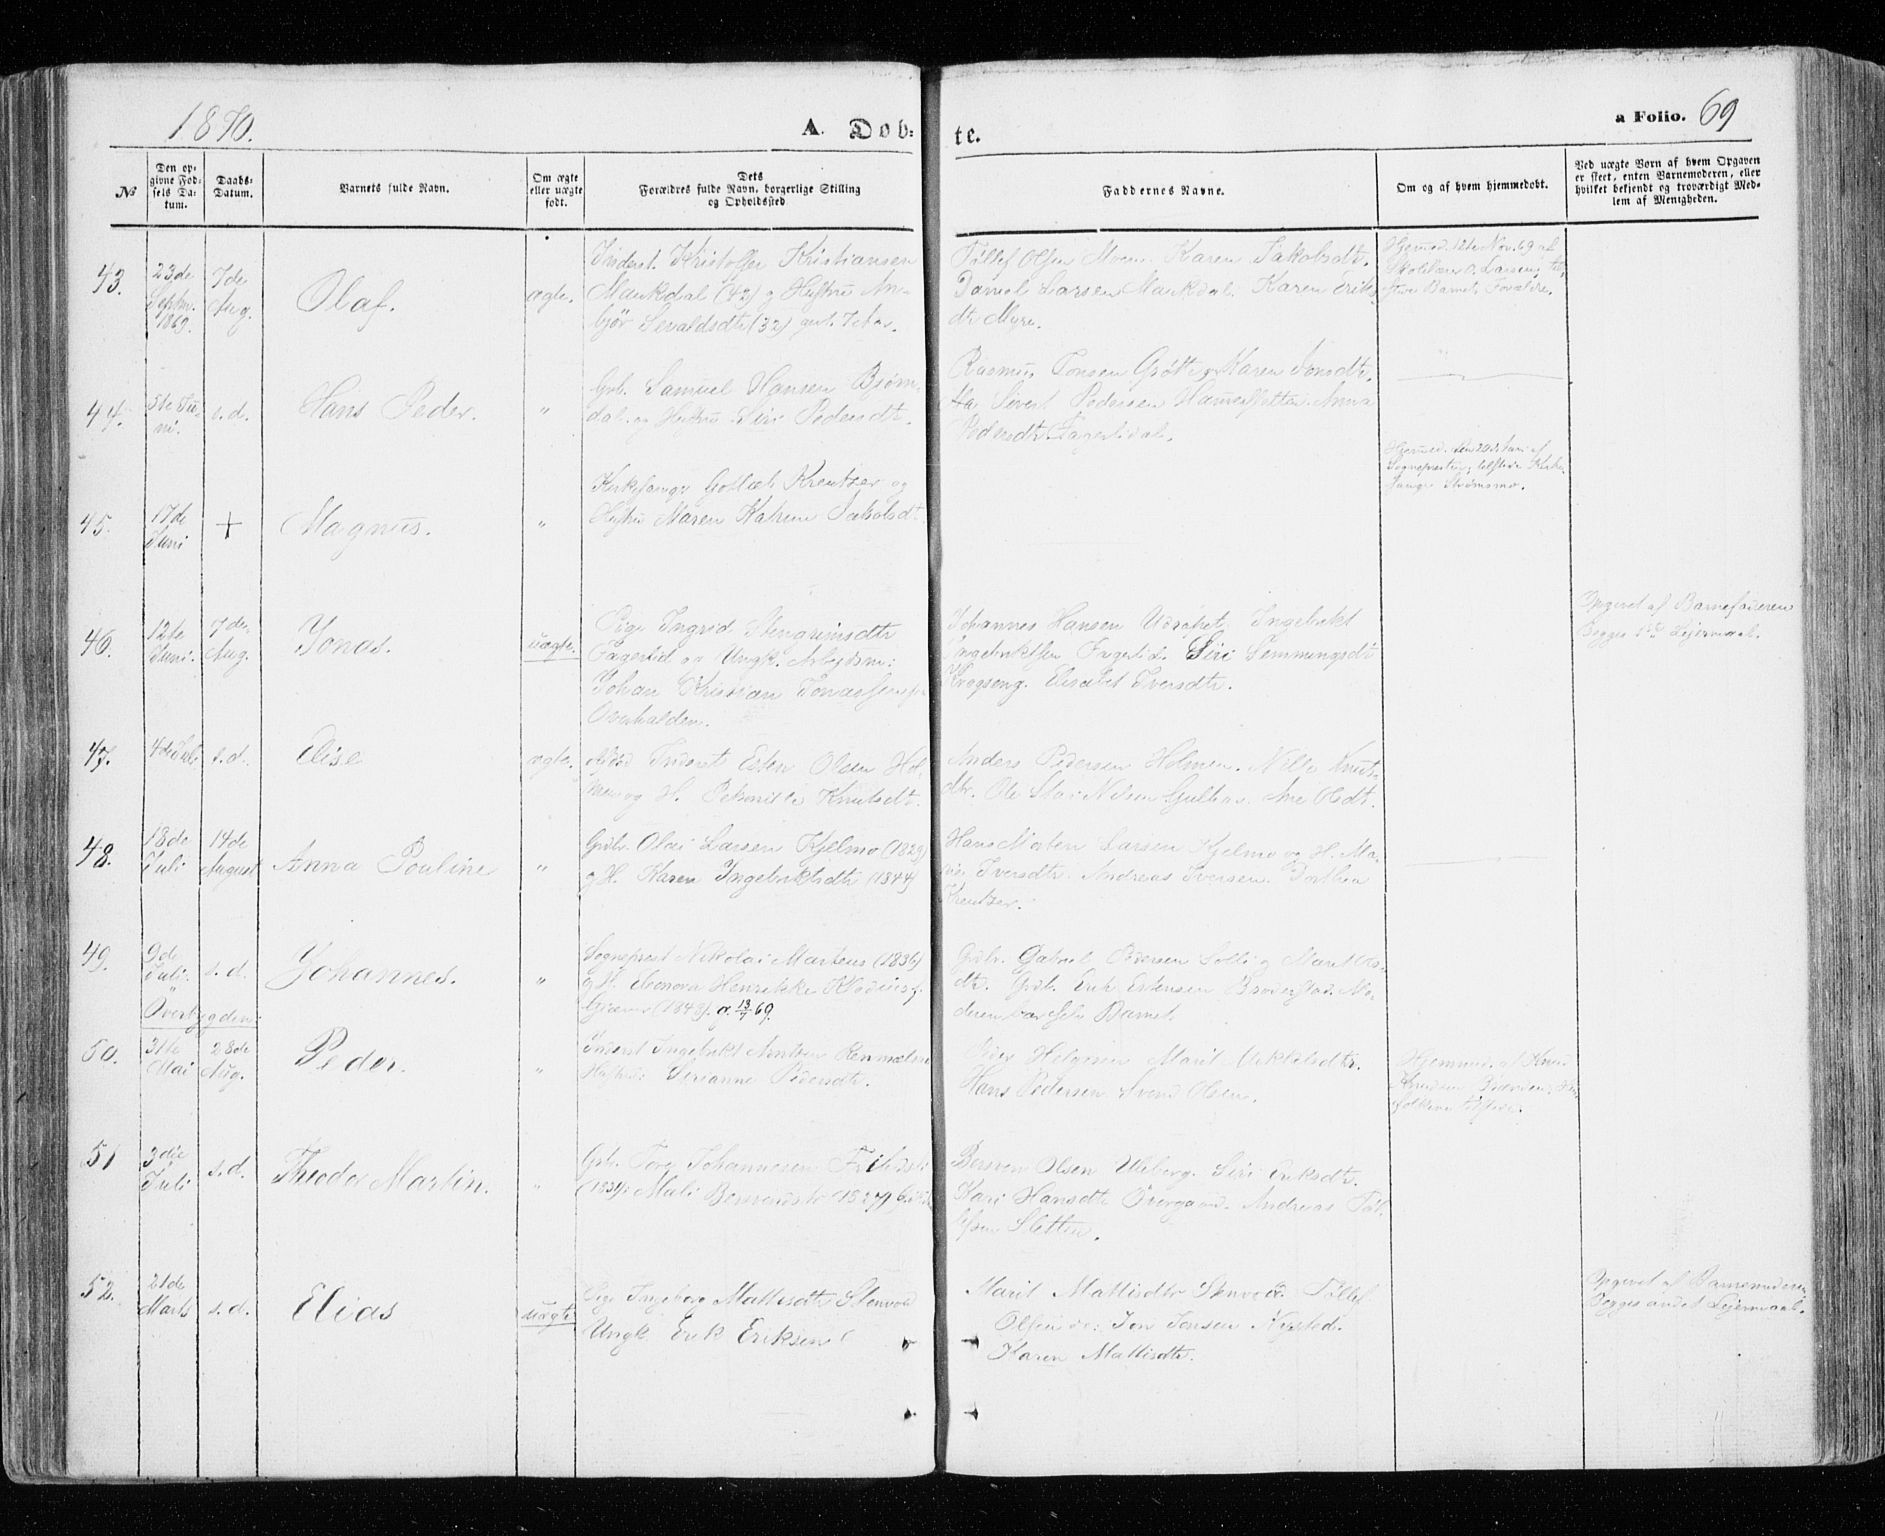 1870.
A. Døb=
te.
a Folio. 69
No
Den op-
givne Fød-
sels Da-
tum.
Daabs-
Datum.
Barnets fulde Navn.
Om ægte
eller uægte
født.
Dets
Forældres fulde Navn, borgerlige Stilling
og Opholdssted
Faddernes Navne.
Om og af hvem hjemmedøbt.
Ved uægte Børn af hvem Opgaven
er skeet, enten Barnemoderen, eller
hvilket bekjendt og troværdigt Med-
lem af Menigheden.
43.
23de
Septbr.
1869.
7de
Aug.
Olaf.
ægte.
Inderst. Kristoffer Kristiansen
Maukdal (42) og Hustru An-
bjør Sevaldsdtr (32)
Tollef Olsen Moen. Karen Jakobsdtr.
Daniel Larsen Maukdal. Karen Eriks-
dtr Myre.
Hjemmed. 12te Nov. 69 af
Skolelærer O. Larsen, til-
stede Barnets Forældre.
44.
5te Ju-
ni.
s. d.
Hans Peder.
"
Grb. Samuel Hansen Brøm-
dal og Hustru Siri Pedersdtr.
Rasmus Jonsen Grøtte og Karen Jonsdtr.
Sivert Pedersen Anna
Pedersdtr Fagerlidal.
45.
17de
Juni
+
Magnus.
"
Kirkesanger Gotlieb Kreutzer og
Hustru Maren Katrine Jakobsdtr
Hjemmed. den 20de Juni af
Sognepresten, tilstede Kirke-
sanger Strømsmo.
46.
12te
Juni.
7de
Aug.
Jonas.
uægte.
Pige Ingrid
Fagerlid og Ungk. Arbeidsm:
Johan Kristian Jonassen fra
Overhalden.
Johannes Hansen Ingebrikt
Ingebriktsen Fagerlid. Siri Semmingsdtr
Krogseng. Elisabet Iversdtr.
Opgivet af Barnefaderen
Begges 1ste Leiermaal.
47.
4de Juli
s. d.
Elise
ægte.
Inderst Esten Olsen Hol-
men og H. Knutsdtr.
Anders Pedersen Holmen. Knuts-
dtr. Ole Nilsen Gulhav. Ane Olsdtr.
48.
18de
Juli
14de
August
Anna Pouline
"
Grdbr. Olai Larsen Kjelmo (1829)
og H. Karen Ingebriktsdtr (1844)
Hans Morten Larsen Kjelmo og H. Ma-
rie Iversdtr. Andreas Iversen. Dorthea
Kreutzer.
49.
9de
Juli.
s. d.
Johannes.
"
Sogneprest Nikolai Martens (1836)
og H. Eleonora Henrikke Klodius f.
Gjæver (1848). g. 13/7 69.
Grdbr. Gabriel Pedersen Solli og Marit Ols-
dtr. Grdbr. Erik Estensen Broderstad. Mo-
deren bar selv Barnet.
Overbygden:
50.
31te
Mai
28de
Aug.
Peder.
"
Inderst Ingebrikt Arntsen
Hustru: Serianne Pedersdtr.
Peder Helgesen Marit Mikkelsdtr.
Hans Pedersen. Svend Olsen.
Hjemmed. af Knud
Knudsen
folkene tilstede.
51
3die
Juli
s. d.
Theodor Martin.
"
Grb. Tore Johannesen
(1831): Mali Bersvendsdtr (1827)
Bersven Olsen Uleberg. Siri Eriksdtr.
Kari Hansdtr Øvergaard. Andreas Tol-
lefsen Sletten.
52.
21de
Marts
s. d.
Elias
uægte
Pige Ingeborg Mattisdtr Stenvold
Ungk Erik Eriksen
Marit Mattisdtr Stenvold Tollef
Olsen do: Jon Jonsen Nystad.
Karen Mattisdtr.
Opgivet af Barnemoderen
Begges andet Leiermaal.